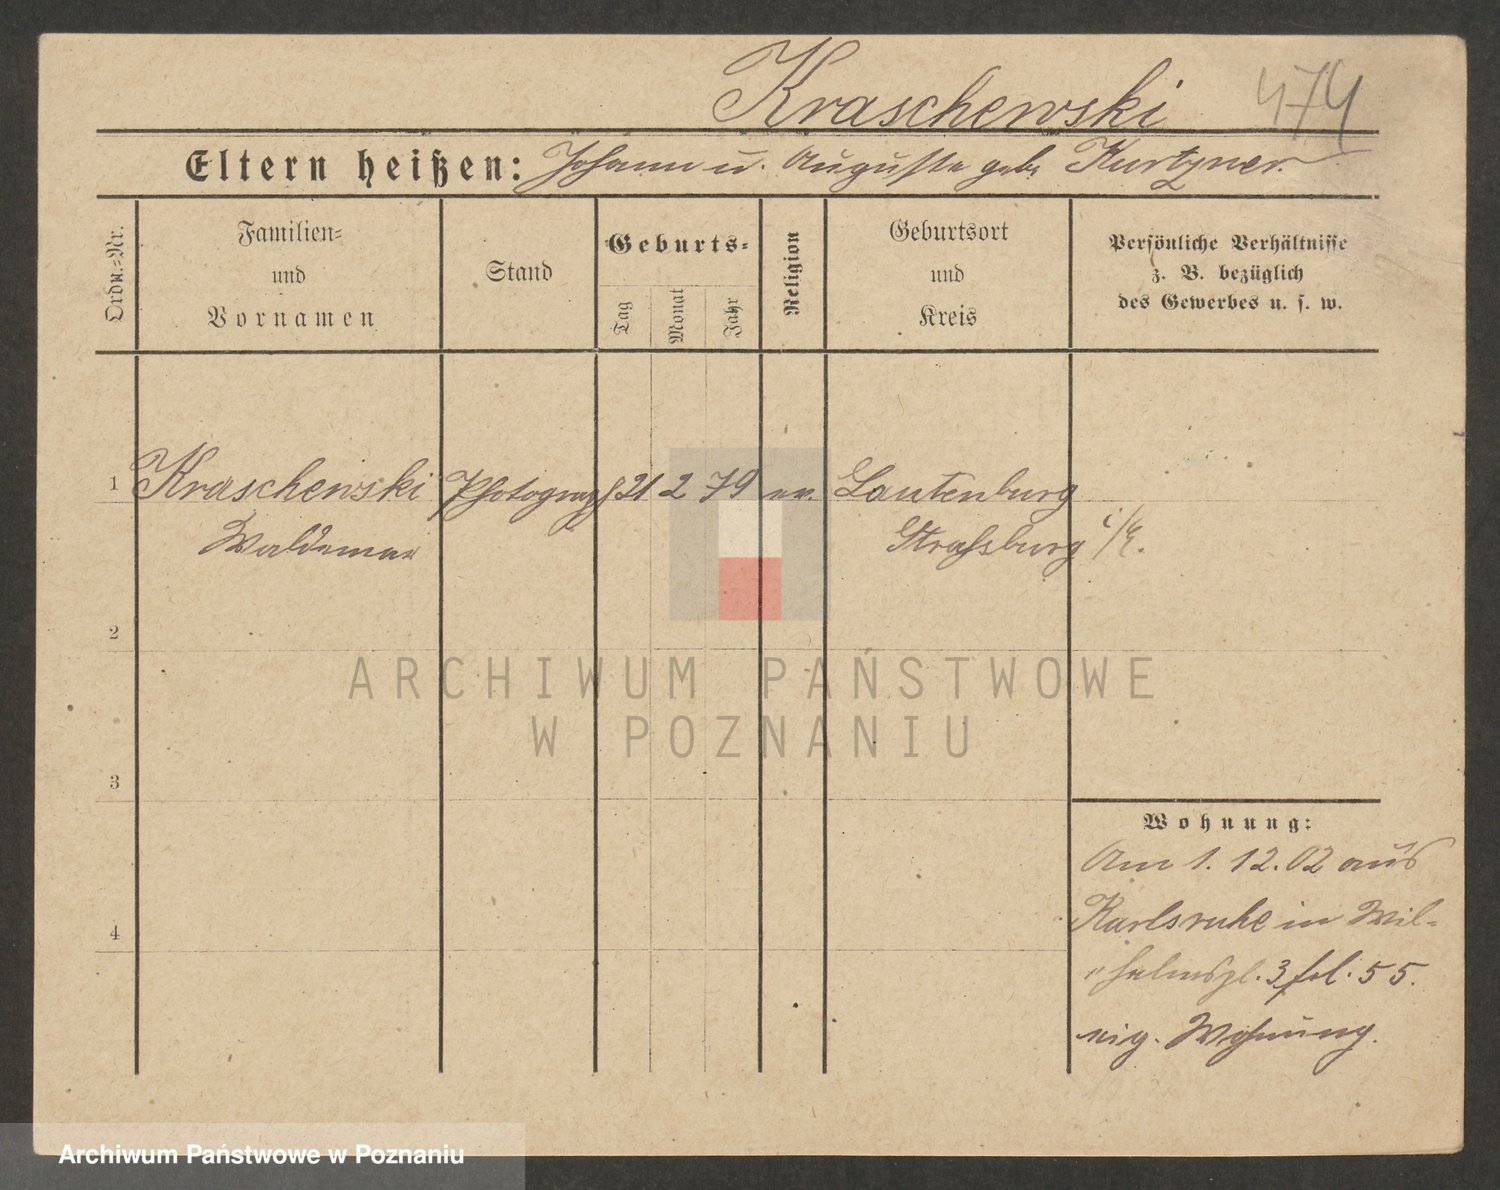 Kraschewski 474
Eltern heißen: Johann u. Auguste geb. Kurtzner.
Ordn.-Nr.
Familien-
und
Vornamen
Stand
Geburts-
Tag
Monat
Jahr
Religion
Geburtsort
und
Kreis
Persönliche Verhältnisse
z. B. bezüglich
des Gewerbes u. s. w.
1 Kraschewski Photograph 21 2 79 ev. Lautenburg
Waldemar Strassburg
2
3
4
Wohnung:
Am 1. 12. 02 aus
Karlsruhe in Wil-
helmspl. 3 fol. 55.
eig. Wohnung.
ARCHIWUM PAŃSTWOWE
W POZNANIU
Archiwum Państwowe w Poznaniu